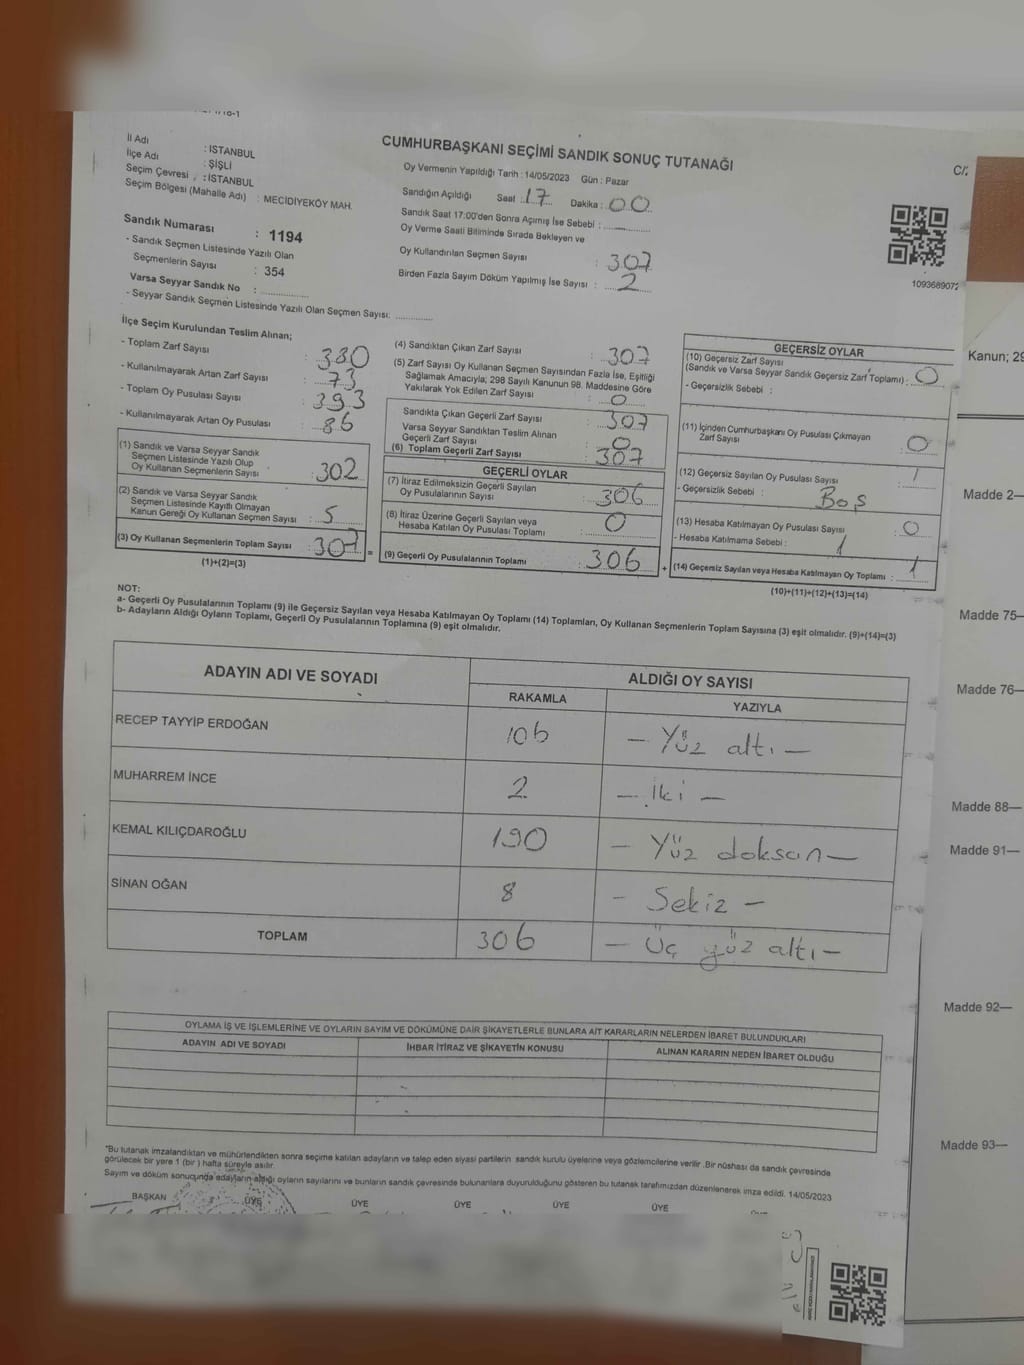 İl Adı : ISTANBUL
İlçe Adı : ŞİŞLİ
Seçim Çevresi : İSTANBUL
Seçim Bölgesi (Mahalle Adı) : MECİDİYEKÖY MAH.
Sandık Numarası : 1194
- Sandık Seçmen Listesinde Yazılı Olan
Seçmenlerin Sayısı : 354
Varsa Seyyar Sandık No :
- Seyyar Sandık Seçmen Listesinde Yazılı Olan Seçmen Sayısı:
CUMHURBAŞKANI SEÇİMİ SANDIK SONUÇ TUTANAĞI
Oy Vermenin Yapıldığı Tarih : 14/05/2023 Gün : Pazar
Sandığın Açıldığı Saat : 17 Dakika : 00
Sandık Saat 17:00'den Sonra Açımış İse Sebebi :
Oy Verme Saati Bitiminde Sırada Bekleyen ve
Oy Kullandırılan Seçmen Sayısı : 307
Birden Fazla Sayım Döküm Yapılmış İse Sayısı : 2
1093689072
İlçe Seçim Kurulundan Teslim Alınan;
- Toplam Zarf Sayısı : 380
- Kullanılmayarak Artan Zarf Sayısı : 73
- Toplam Oy Pusulası Sayısı : 393
- Kullanılmayarak Artan Oy Pusulası : 86
(1) Sandık ve Varsa Seyyar Sandık
Seçmen Listesinde Yazılı Olup
Oy Kullanan Seçmenlerin Sayısı : 302
(2) Sandık ve Varsa Seyyar Sandık
Seçmen Listesinde Kayıtlı Olmayan
Kanun Gereği Oy Kullanan Seçmen Sayısı : 5
(3) Oy Kullanan Seçmenlerin Toplam Sayısı : 307 =
(1)+(2)=(3)
(4) Sandıktan Çıkan Zarf Sayısı : 307
(5) Zarf Sayısı Oy Kullanan Seçmen Sayısından Fazla İse, Eşitliği
Sağlamak Amacıyla; 298 Sayılı Kanunun 98. Maddesine Göre
Yakılarak Yok Edilen Zarf Sayısı : 0
Sandıkta Çıkan Geçerli Zarf Sayısı : 307
Varsa Seyyar Sandıktan Teslim Alınan
Geçerli Zarf Sayısı : 0
(6) Toplam Geçerli Zarf Sayısı : 307
GEÇERLİ OYLAR
(7) İtiraz Edilmeksizin Geçerli Sayılan
Oy Pusulalarının Sayısı : 306
(8) İtiraz Üzerine Geçerli Sayılan veya
Hesaba Katılan Oy Pusulası Toplamı : 0
(9) Geçerli Oy Pusulalarının Toplamı : 306 +
GEÇERSİZ OYLAR
(10) Geçersiz Zarf Sayısı
(Sandık ve Varsa Seyyar Sandık Geçersiz Zarf Toplamı) : 0
- Geçersizlik Sebebi :
(11) İçinden Cumhurbaşkanı Oy Pusulası Çıkmayan
Zarf Sayısı : 0
(12) Geçersiz Sayılan Oy Pusulası Sayısı : 1
- Geçersizlik Sebebi : Boş
(13) Hesaba Katılmayan Oy Pusulası Sayısı : 0
- Hesaba Katılmama Sebebi :
(14) Geçersiz Sayılan veya Hesaba Katılmayan Oy Toplamı : 1
(10)+(11)+(12)+(13)=(14)
NOT:
a- Geçerli Oy Pusulalarının Toplamı (9) ile Geçersiz Sayılan veya Hesaba Katılmayan Oy Toplamı (14) Toplamları, Oy Kullanan Seçmenlerin Toplam Sayısına (3) eşit olmalıdır. (9)+(14)=(3)
b- Adayların Aldığı Oyların Toplamı, Geçerli Oy Pusulalarının Toplamına (9) eşit olmalıdır.
ADAYIN ADI VE SOYADI ALDIĞI OY SAYISI
RAKAMLA YAZIYLA
RECEP TAYYİP ERDOĞAN 106 - Yüz altı -
MUHARREM İNCE 2 - İki -
KEMAL KILIÇDAROĞLU 190 - Yüz doksan -
SİNAN OĞAN 8 - Sekiz -
TOPLAM 306 - Üç yüz altı -
OYLAMA İŞ VE İŞLEMLERİNE VE OYLARIN SAYIM VE DÖKÜMÜNE DAİR ŞİKAYETLERLE BUNLARA AİT KARARLARIN NELERDEN İBARET BULUNDUKLARI
ADAYIN ADI VE SOYADI İHBAR İTİRAZ VE ŞİKAYETİN KONUSU ALINAN KARARIN NEDEN İBARET OLDUĞU
*Bu tutanak imzalandıktan ve mühürlendikten sonra seçime katılan adayların ve talep eden siyasi partilerin sandık kurulu üyelerine veya gözlemcilerine verilir. Bir nüshası da sandık çevresinde
görülecek bir yere 1 (bir) hafta süreyle asılır.
Sayım ve döküm sonucunda adayların aldığı oyların sayılarını ve bunların sandık çevresinde bulunanlara duyurulduğunu gösteren bu tutanak tarafımızdan düzenlenerek imza edildi. 14/05/2023
BAŞKAN ÜYE ÜYE ÜYE ÜYE ÜYE
Kanun; 29
Madde 2—
Madde 75—
Madde 76—
Madde 88—
Madde 91—
Madde 92—
Madde 93—